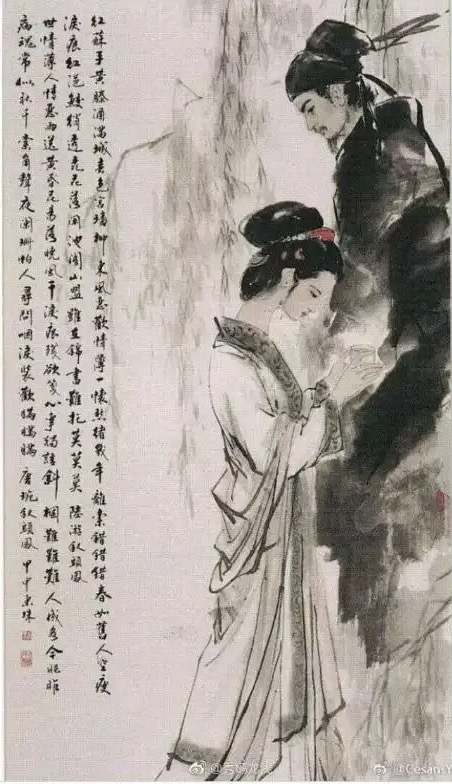 紅蘇手黃滕酒滿城春色宮墻柳東風惡歡情薄一懷愁緒幾年離索錯錯錯春如舊人空瘦
淚痕紅浥鮫綃透桃花落閑池閣山盟雖在錦書難托莫莫莫 陸游釵頭鳳
世情薄人情惡雨送黃昏花易落曉風干淚痕殘欲箋心事獨語斜欄難難難人成各今非昨
病魂常似秋千索角聲夜闌珊怕人尋問咽淚裝歡瞞瞞瞞 唐琬釵頭鳳 甲申
@Cesan-Y